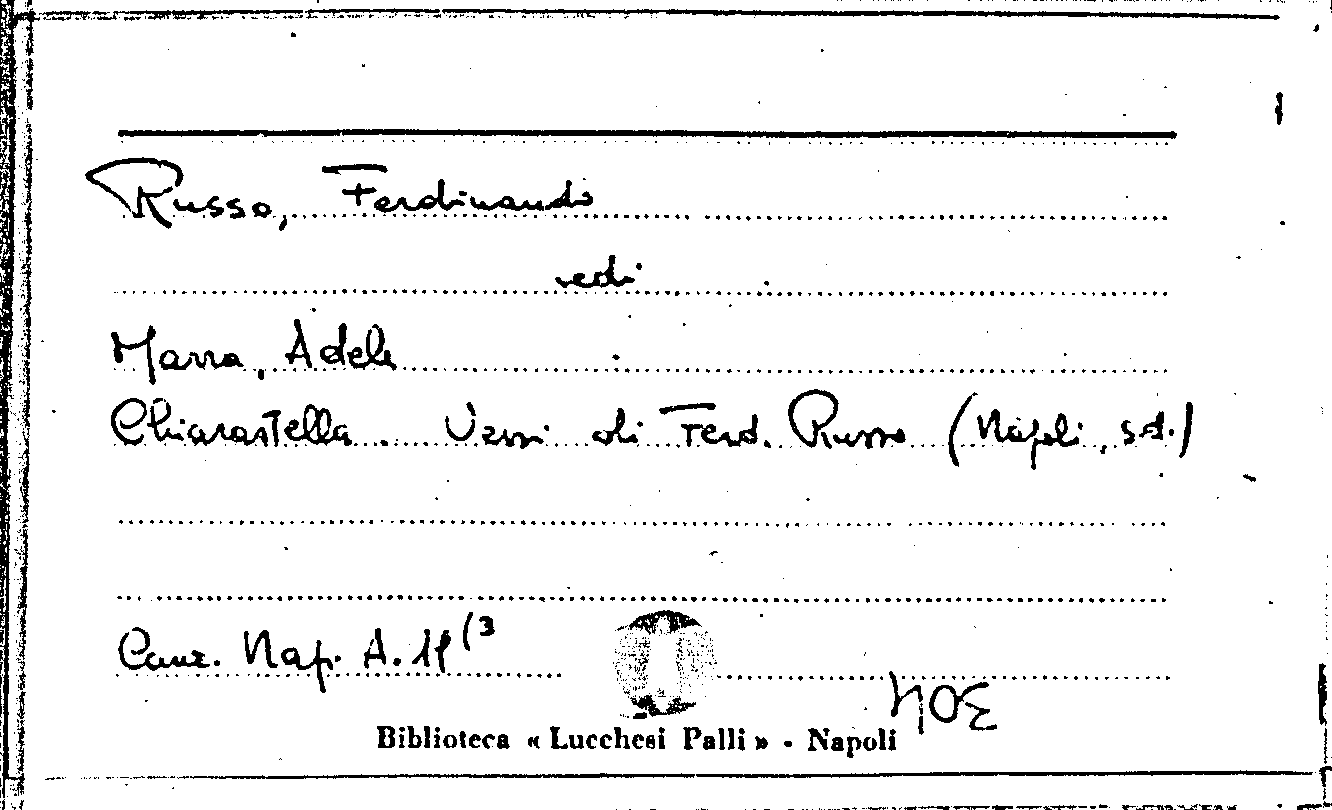 Russo, Ferdinando
vedi
Marra, Adele
Chiarastella. Versi di Ferd. Russo (Napoli, s.d.)
Canz. Nap. A. 11 (3
Biblioteca « Lucchesi Palli » - Napoli